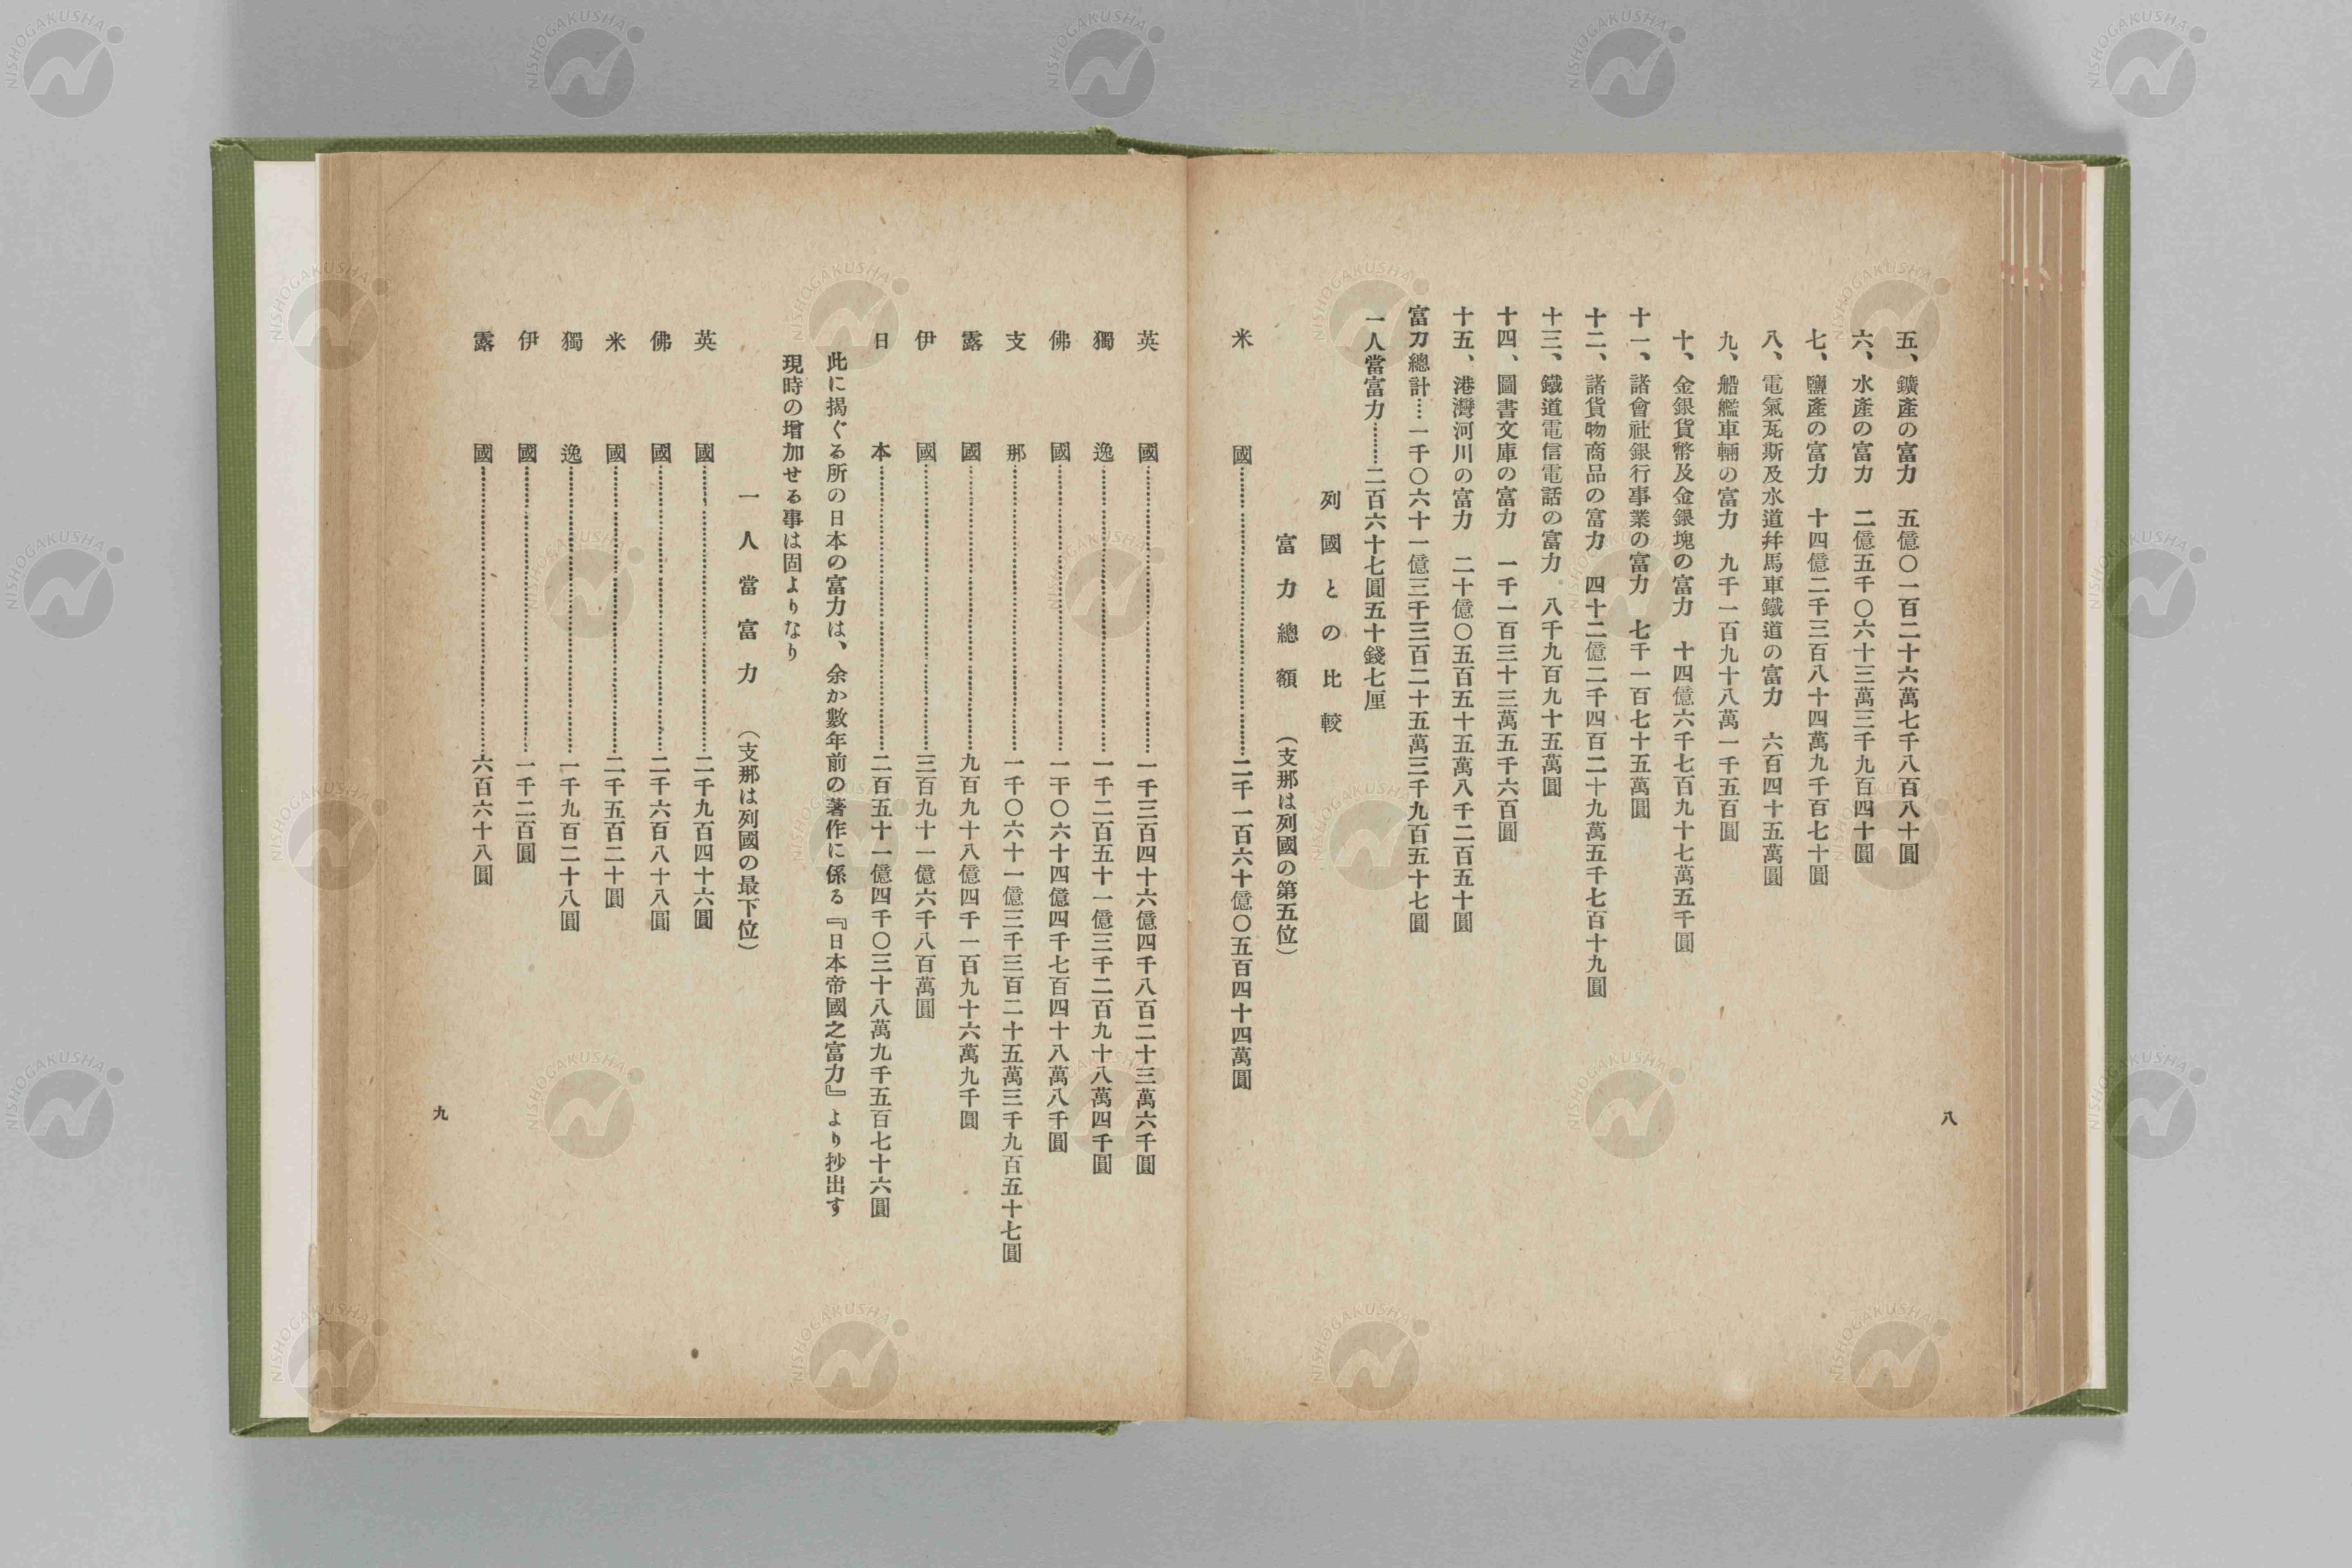 五、鑛產の富力　五億〇一百二十六萬七千八百八十圓
六、水產の富力　二億五千〇六十三萬三千九百四十圓
七、鹽產の富力　十四億二千三百八十四萬九千百七十圓
八、電氣瓦斯及水道幷馬車鐵道の富力　六百四十五萬圓
九、船艦車輛の富力　九千一百九十八萬一千五百圓
十、金銀貨幣及金銀塊の富力　十四億六千七百九十七萬五千圓
十一、諸會社銀行事業の富力　七千一百七十五萬圓
十二、諸貨物商品の富力　四十二億二千四百二十九萬五千七百十九圓
十三、鐵道電信電話の富力　八千九百九十五萬圓
十四、圖書文庫の富力　一千一百三十三萬五千六百圓
十五、港灣河川の富力　二十億〇五百五十五萬八千二百五十圓
富力總計……一千〇六十一億三千三百二十五萬三千九百五十七圓
一人當富力………二百六十七圓五十錢七厘
列國との比較
富力總額　（支那は列國の第五位）
米國……………二千一百六十億〇五百四十四萬圓
八
英國……………一千三百四十六億四千八百二十三萬六千圓
獨逸……………一千二百五十一億三千二百九十八萬四千圓
佛國……………一千〇六十四億四千七百四十八萬八千圓
支那……………一千〇六十一億三千三百二十五萬三千九百五十七圓
露國……………九百九十八億四千一百九十六萬九千圓
伊國……………三百九十一億六千八百萬圓
日本……………二百五十一億四千〇三十八萬九千五百七十六圓
此に揭ぐる所の日本の富力は、余か數年前の著作に係る『日本帝國之富力』より抄出す
現時の增加せる事は固よりなり
一人當富力　（支那は列國の最下位）
英國……………二千九百四十六圓
佛國……………二千六百八十八圓
米國……………二千五百二十圓
獨逸……………一千九百二十八圓
伊國……………一千二百圓
露國……………六百六十八圓
九
NISHOGAKUSHA